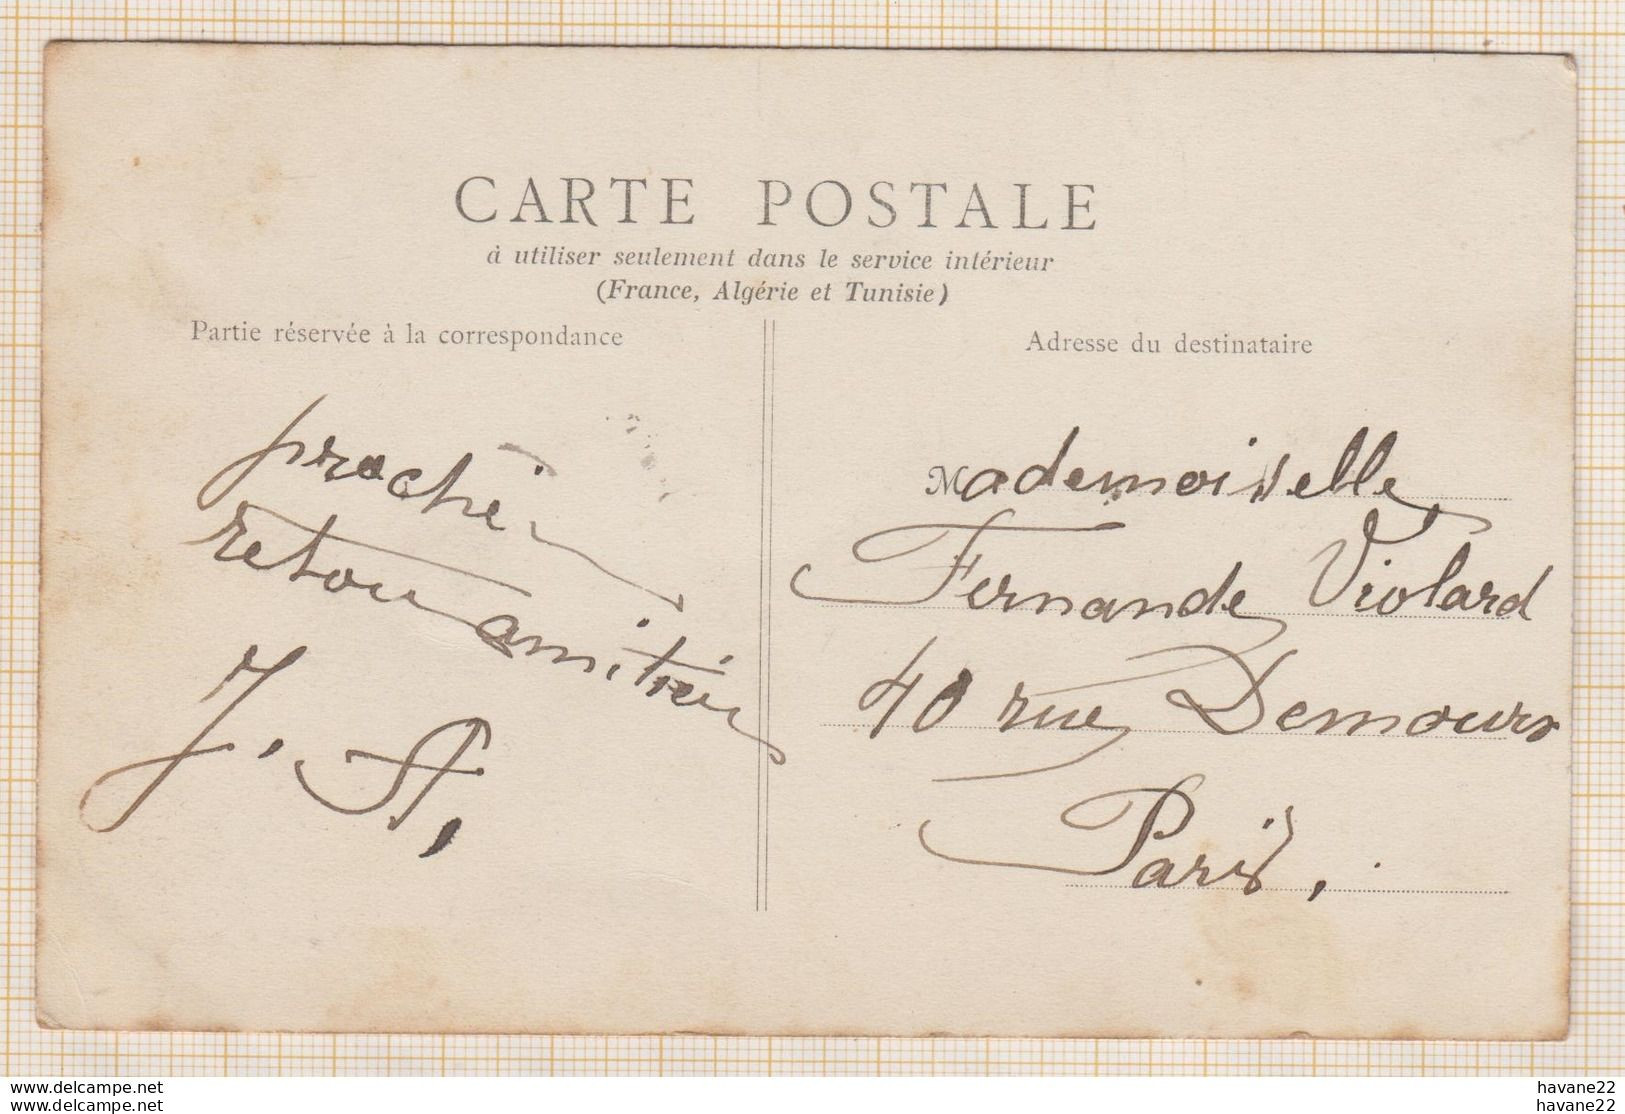 CARTE POSTALE
à utiliser seulement dans le service intérieur
(France, Algérie et Tunisie)
Partie réservée à la correspondance
proche
retour amitiés
J. A.
Adresse du destinataire
Mademoiselle
Fernande Violard
40 rue Demours
Paris.
www.delcampe.net
www.delcampe.net
havane22
havane22